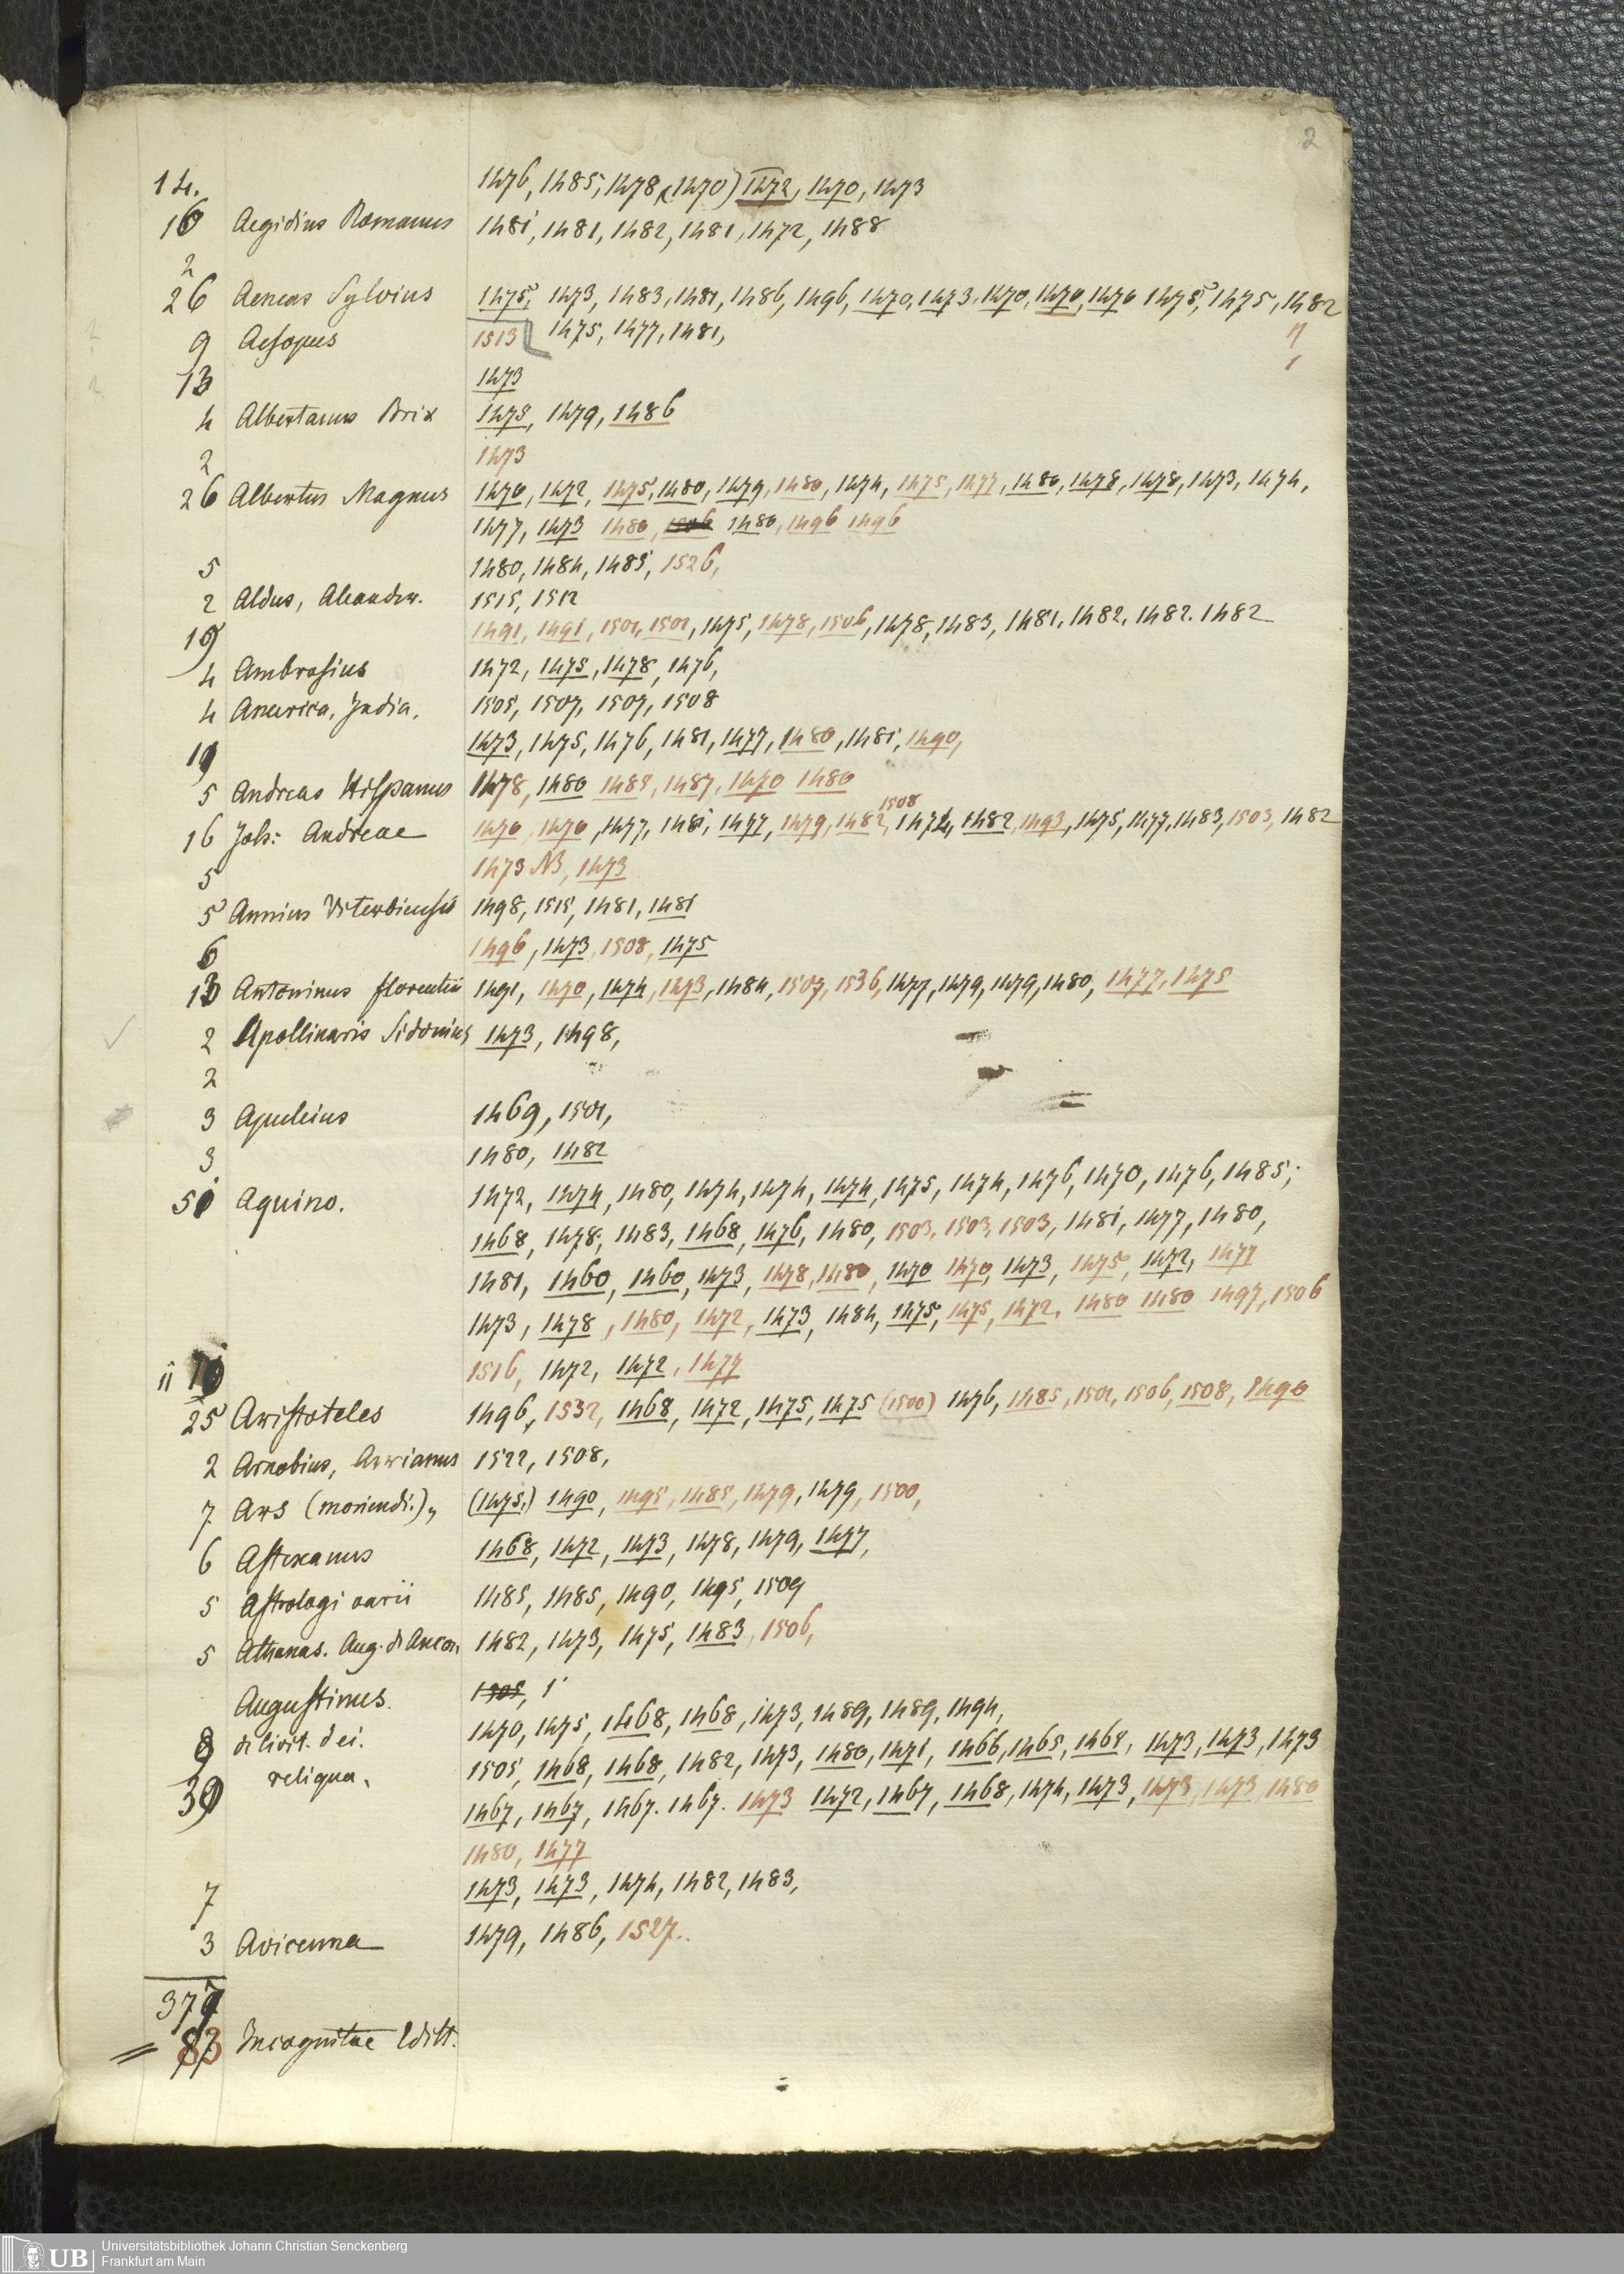 2
14. 1476, 1485, 1478, (1470) 1472, 1470, 1473
16 Aegidius Romanus 1481, 1481, 1482, 1481, 1472, 1488
2
26 Aeneas Sylvius 1475, 1473, 1483, 1481, 1486, 1496, 1470, 1473, 1470, 1470, 1470 1475, 1475, 1482
9 Aesopus 1513 1475, 1477, 1481,
13 1473
4 Albertanus Brix 1475, 1479, 1486
2 1473
26 Albertus Magnus 1470, 1472, 1475, 1480, 1479, 1480, 1474, 1475, 1477, 1480, 1478, 1478, 1473, 1474,
1477, 1473 1480, 1480, 1496 1496
5 1480, 1484, 1485, 1526,
2 Aldus, Aleander. 1515, 1512
19 1491, 1491, 1501, 1501, 1475, 1478, 1506, 1478, 1483, 1481, 1482, 1482. 1482
4 Ambrosius 1472, 1475, 1478, 1476,
4 America, India. 1505, 1507, 1507, 1508
19 1473, 1475, 1476, 1481, 1477, 1480, 1481, 1490,
5 Andreas Hispanus 1478, 1480 1488, 1487, 1470 1480
1508
16 Joh: Andreae 1470, 1470, 1477, 1481, 1477, 1479, 1482, 1472, 1482, 1493, 1475, 1477, 1483, 1503, 1482
5 1473 NB, 1473
5 Annius Viterbiensis 1498, 1515, 1481, 1481
6 1496, 1473, 1508, 1475
13 Antoninus florentin 1491, 1470, 1474, 1473, 1484, 1507, 1536, 1477, 1479, 1479, 1480, 1477, 1475
2 Apollinaris Sidonius 1473, 1498,
2
3 Apuleius 1469, 1501,
3 1480, 1482
51 Aquino. 1472, 1474, 1480, 1474, 1474, 1474, 1475, 1474, 1476, 1470, 1476, 1485;
1468, 1478, 1483, 1468, 1476, 1480, 1503, 1503, 1503, 1481, 1477, 1480,
1481, 1460, 1460, 1473, 1478, 1480, 1470 1470, 1473, 1475, 1472, 1477
1473, 1478, 1480, 1472, 1473, 1484, 1475, 1475, 1472, 1480 1480 1497, 1506
11 1516, 1472, 1472, 1477
25 Aristoteles 1496, 1532, 1468, 1472, 1475, 1475 (1500) 1476, 1485, 1501, 1506, 1508, 1490
2 Arnobius, Arrianus 1522, 1508,
7 Ars (moriendi.), (1475.) 1490, 1495, 1485, 1479, 1479, 1500,
6 Astexanus 1468, 1472, 1473, 1478, 1479, 1477,
5 Astrologi varii 1485, 1485, 1490, 1495, 1509
5 Athanas. Aug. d Ancon 1482, 1473, 1475, 1483, 1506,
Augustinus. 1505, 1
8 di civit. dei. 1470, 1475, 1468, 1468, 1473, 1489, 1489, 1494,
39 reliqua. 1505, 1468, 1468, 1482, 1473, 1480, 1471, 1466, 1465, 1468, 1473, 1473, 1473
1467, 1467, 1467. 1467. 1473 1472, 1467, 1468, 1474, 1473, 1473, 1473, 1480
1480, 1477
7 1473, 1473, 1474, 1482, 1483,
3 Avicenna 1479, 1486, 1527.
377
83 Incognitae Editt.
UB Universitätsbibliothek Johann Christian Senckenberg
Frankfurt am Main